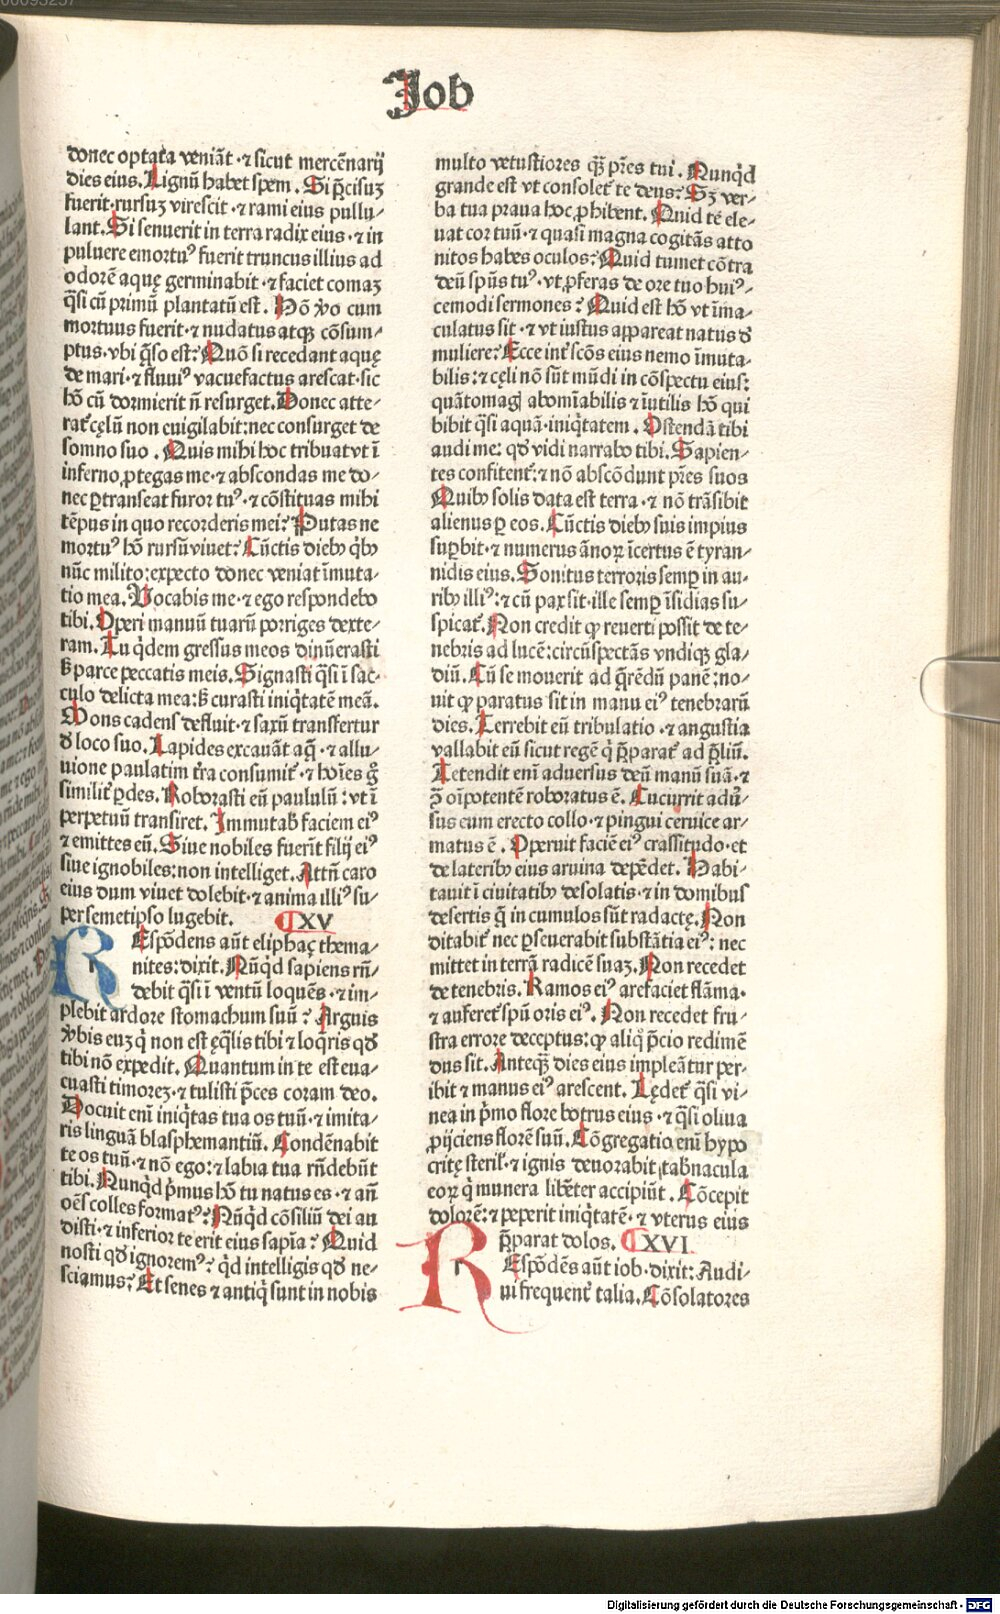 Job
donec optata veniāt · ⁊ sicut mercēnarij
dies eius. Lignū habet spem. Si p̄cisuꝫ
fuerit·rursuꝫ virescit ·⁊ rami eius pullu⸗
lant. Si senuerit in terra radix eius · ⁊ in
puluere emortuꝰ fuerit truncus illius ad
odorē aquę germinabit · ⁊ faciet comaꝫ
q̄si cū primū plantatū est . Hō v̓o cum
mortuus fuerit · ⁊ nudatus atqꝫ cōsum⸗
ptus·vbi q̄so est? Quō si recedant aquę
de mari · ⁊ fluuiꝰ vacuefactus arescat·sic
hō cū dormierit n̄ resurget. Donec atte⸗
rat᷑ cęlū non euigilabit: nec consurget de
somno suo . Quis mihi hoc tribuat vt ī
inferno ꝓtegas me · ⁊ abscondas me do⸗
nec ꝑtranseat furor tuꝰ · ⁊ cōstituas mihi
tēpus in quo recorderis mei? Putas ne
mortuꝰ hō rursū viuet? Cūctis diebꝰ q̇bꝰ
nūc milito: expecto donec veniat īmuta⸗
tio mea. Vocabis me · ⁊ ego respondebo
tibi. Operi manuū tuarū porriges dexte⸗
ram. Tu q̇dem gressus meos dinūerasti
ß parce peccatis meis. Signasti q̄si ī sac⸗
culo delicta mea: ß curasti iniq̇tatē meā.
Mons cadens defluit · ⁊ saxū transfertur
đ loco suo. Lapides excauāt aq̄ · ⁊ allu⸗
uione paulatim t̄ra consumit᷑ · ⁊ hoīes g̊
similit᷑ ꝑdes. Roborasti eū paululū: vt ī
perpetuū transiret. Immutab̄ faciem eiꝰ
⁊ emittes eū. Siue nobiles fuerīt filij eiꝰ
siue ignobiles: non intelliget. Attn̄ caro
eius dum viuet dolebit · ⁊ anima illiꝰ su⸗
per semetipso lugebit. XV
REspōdens aūt eliphaꝫ thema⸗
nites: dixit. Nūq̇d sapiens rn̄⸗
debit q̄si ī ventū loquēs · ⁊ im⸗
plebit ardore stomachum suū? Arguis
v̓bis euꝫ q̇ non est ęq̄lis tibi ⁊ loq̄ris qđ
tibi nō expedit. Quantum in te est eua⸗
cuasti timoreꝫ · ⁊ tulisti p̄ces coram deo.
Docuit eni᷒ iniq̇tas tua os tuū · ⁊ imita⸗
ris linguā blasphemantiū. Condēnabit
te os tuū · ⁊ nō ego: ⁊ labia tua rn̄debūt
tibi. Nunq̇d p̄mus hō tu natus es · ⁊ an̄
oēs colles formatꝰ? Nūq̇d cōsiliū dei au
disti · ⁊ inferior te erit eius sap̄ia? Quid
nosti qđ ignoremꝰ? q̇d intelligis qđ ne⸗
sciamus? Et senes ⁊ antiq̇ sunt in nobis
multo vetustiores qꝫ̄ p̄res tui. Nunq̇d
grande est vt consolet᷑ te deus? Sꝫ ver⸗
ba tua praua hoc ꝓhibent. Quid te ele⸗
uat cor tuū · ⁊ quasi magna cogitās atto
nitos habes oculos? Quid tumet cōtra
deū spūs tuꝰ · vt ꝓferas de ore tuo huiꝰ⸗
cemodi sermones? Quid est hō vt īma⸗
culatus sit · ⁊ vt iustus appareat natus đ
muliere? Ecce int᷑ scōs eius nemo īmuta⸗
bilis: ⁊ cęli nō sūt mūdi in cōspectu eius:
quātomagꝭ abomīabilis ⁊ īutilis hō qui
bibit q̄si aquā · iniq̇tatem. Ostendā tibi
audi me: qđ vidi narrabo tibi. Sapien⸗
tes confitent᷑: ⁊ nō abscōdunt p̄res suos
Quibꝰ solis data est terra · ⁊ nō trāsibit
alienus ꝑ eos. Cūctis diebꝰ suis impius
suꝑbit · ⁊ numerus ānoꝝ īcertus ē tyran⸗
nidis eius. Sonitus terroris semꝑ in au⸗
ribꝰ illiꝰ: ⁊ cū pax sit · ille semꝑ īsidias su⸗
spicat᷑. Non credit ꝙ reuerti possit de te⸗
nebris ad lucē: circūspectās vndiqꝫ gla⸗
diū. Cū se mouerit ad q̄rēdū panē: no⸗
uit ꝙ paratus sit in manu eiꝰ tenebrarū
dies. Terrebit eū tribulatio · ⁊ angustia
vallabit eū sicut regē q̇ p̄parat᷑ ad p̄liū.
Tetendit eni᷒ aduersus deū manū suā · ⁊
ↄ̄ oīpotentē roboratus ē. Cucurrit adū̓⸗
sus eum erecto collo · ⁊ pingui ceruice ar⸗
matus ē . Operuit faciē eiꝰ crassitudo · et
de lateribꝰ eius aruina depēdet. Habi⸗
tauit ī ciuitatibꝰ desolatis · ⁊ in domibus
desertis q̄ in cumulos sūt radactę. Non
ditabit᷑ nec ꝑseuerabit substātia eiꝰ: nec
mittet in terrā radicē suaꝫ. Non recedet
de tenebris. Ramos eiꝰ arefaciet flāma·
⁊ auferet᷑ spū oris eiꝰ. Non recedet fru⸗
stra errore deceptus: ꝙ aliq̊ p̄cio redimē
dus sit. Anteqꝫ̄ dies eius impleāt᷑ per⸗
ibit ⁊ manus eiꝰ arescent. Lędet᷑ q̄si vi⸗
nea in p̄mo flore botrus eius · ⁊ q̄si oliua
ꝓijciens florē suū. Cōgregatio eni᷒ hypo
critę sterił · ⁊ ignis deuorabit tab̄nacula
eoꝝ q̇ munera libēter accipiūt. Cōcepit
dolorē: ⁊ peperit iniq̇tatē · ⁊ vterus eius
p̄parat dolos. XVI
REspōdēs aūt iob · dixit: Audi⸗
ui frequent᷑ talia. Cōsolatores
Digitalisierung gefördert durch die Deutsche Forschungsgemeinschaft - DFG